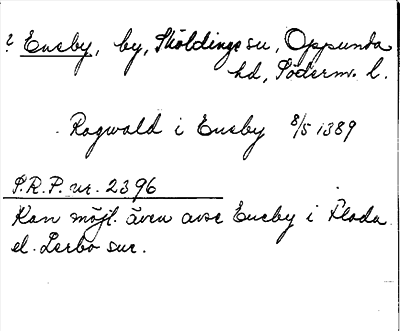 ? Eneby, by, Sköldinge su, Oppunda
hd, Söderm. l.
Ragwald i Eneby 8/5 1389
S.R.P. nr. 2396
Kan möjl. även avse Eneby i Floda
el. Lerbo sur.